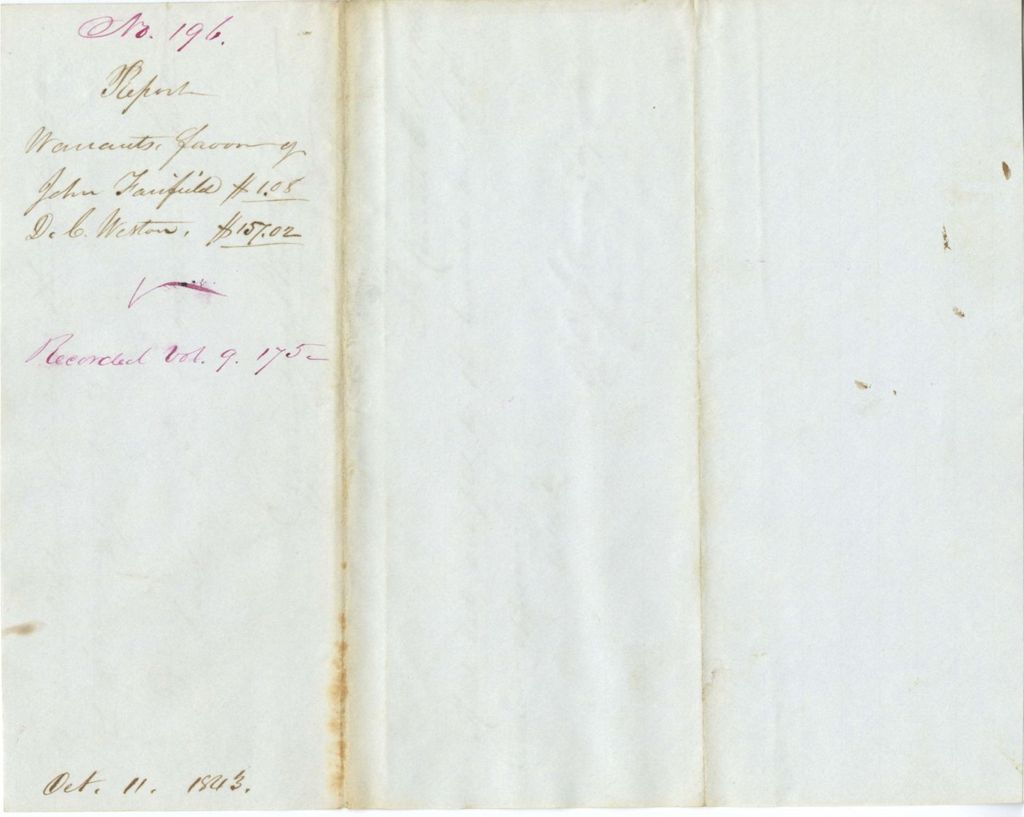 No. 196.
Report
Warrants, favor of
John Fairfield $1.08
D. C. Weston, $157.02
Recorded Vol. 9. 175
Oct. 11. 1843.